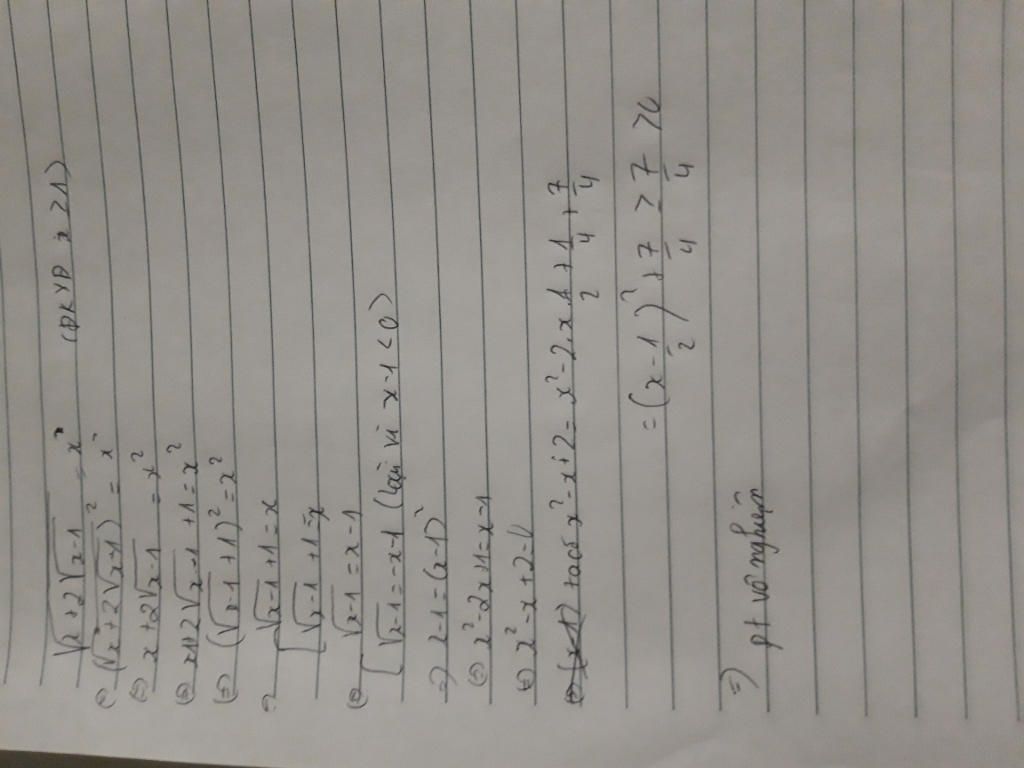 √x+2√x-1 = x (ĐKXĐ x ≥ 1)
⇔ (√x+2√x-1)² = x²
⇔ x+2√x-1 = x²
⇔ x-1+2√x-1 +1 = x²
⇔ (√x-1 +1)² = x²
⇒ [ √x-1 +1 = x
√x-1 +1 = -x
⇔ [ √x-1 = x-1
√x-1 = -x-1 (loại vì x-1 < 0)
⇒ x-1 = (x-1)²
⇔ x²-2x+1 = x-1
⇔ x²-x+2 = 0
ta có x²-x+2 = x²-2.x.1/2 + 1/4 + 7/4
= (x-1/2)² + 7/4 ≥ 7/4 > 0
⇒ pt vô nghiệm